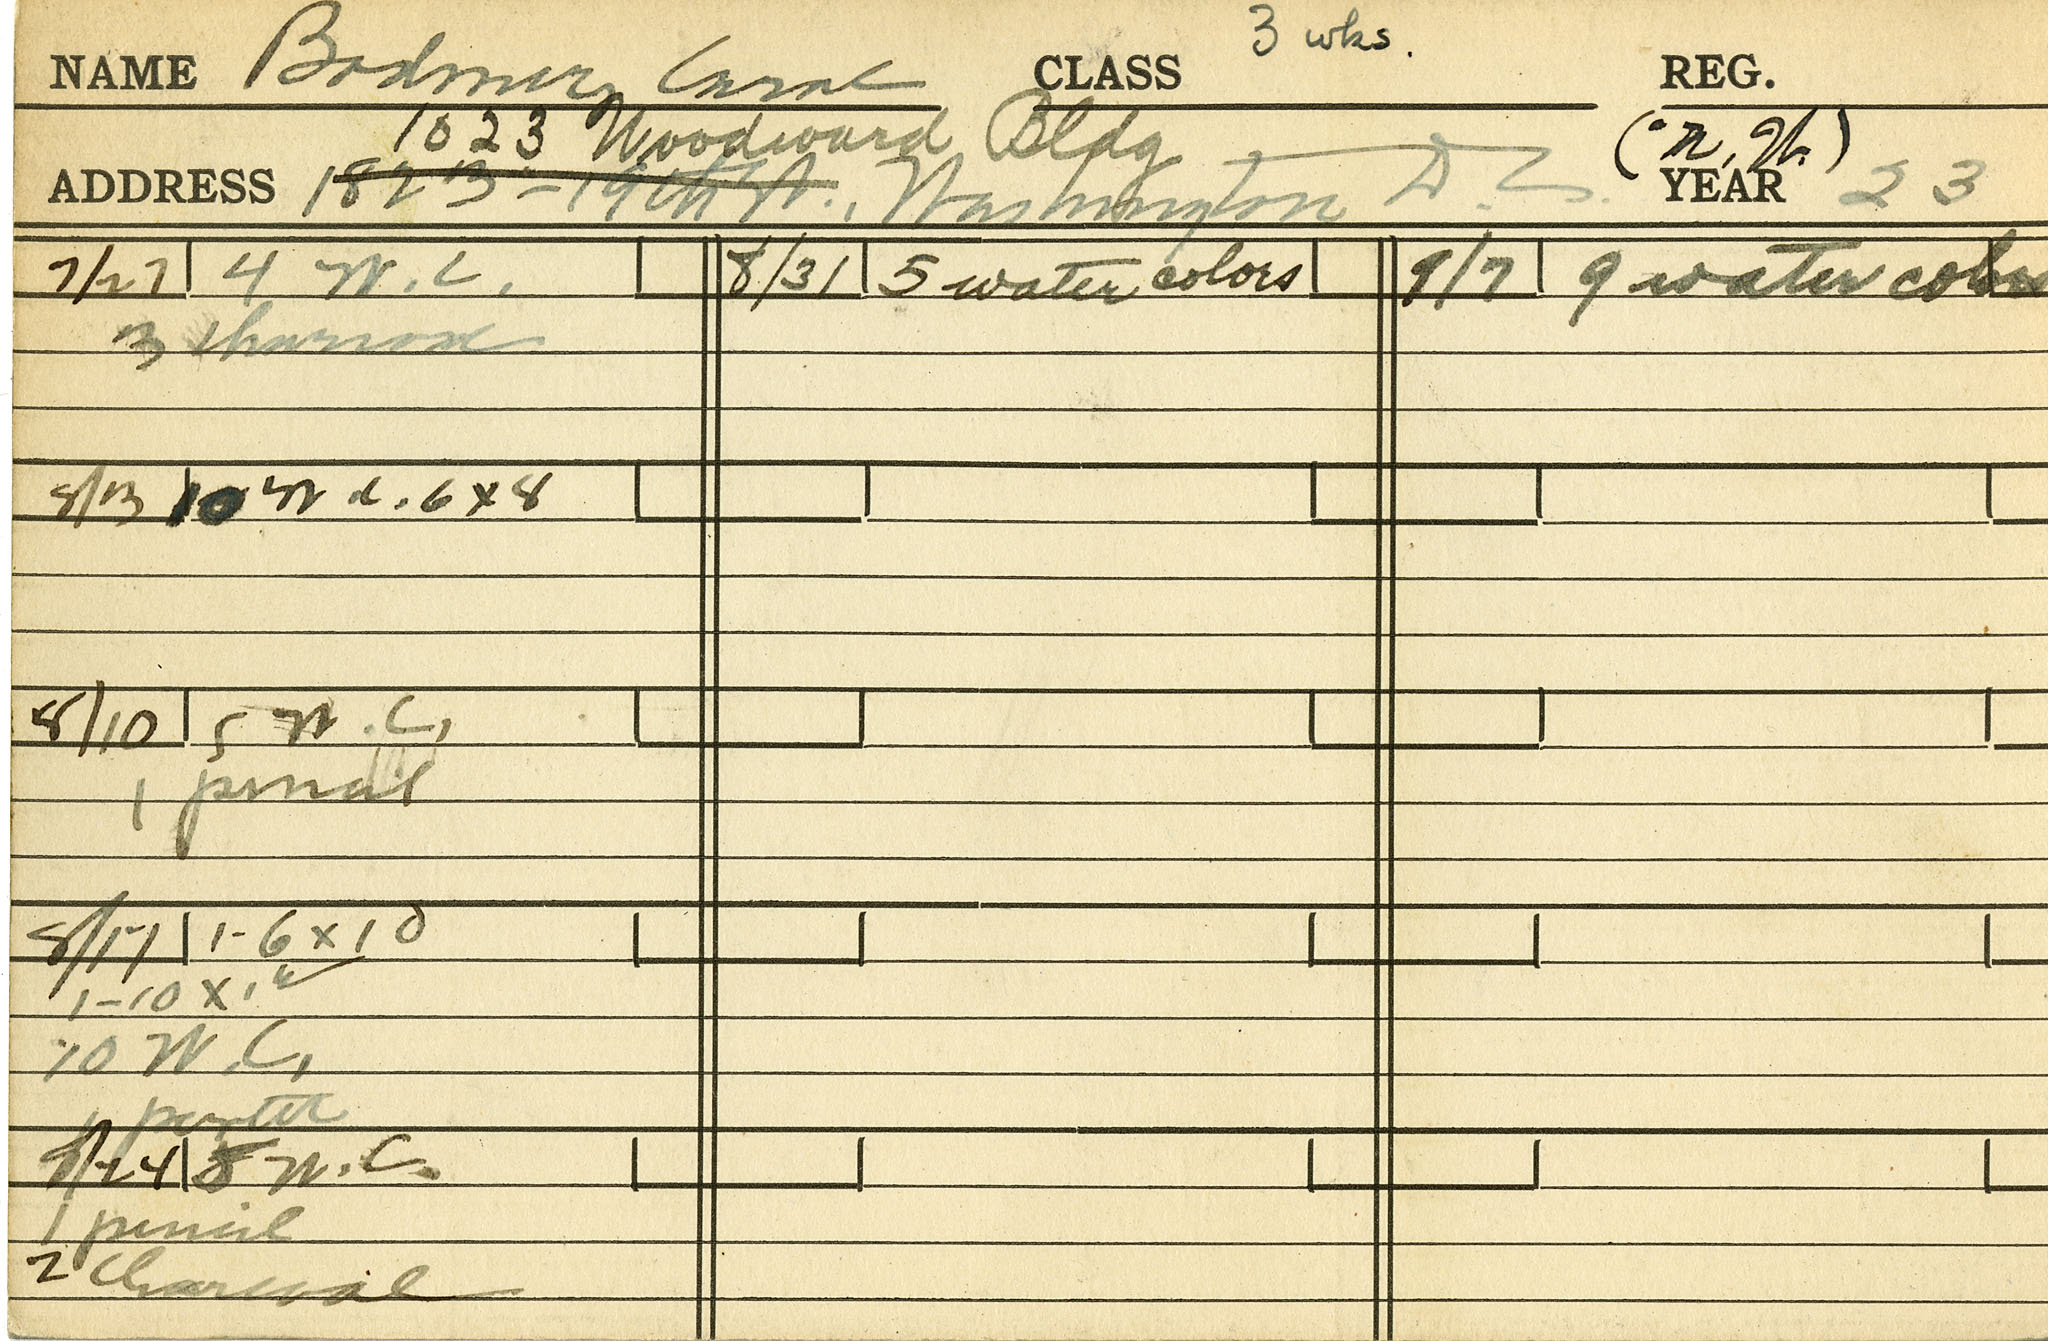 NAME Bodmer, Carol CLASS 3 wks. REG.
1023 Woodward Bldg (N.H.)
ADDRESS 1823 - 19th St., Washington D.C. YEAR 23
7/27 4 W.C. 8/31 5 water colors 9/7 9 water colors
3 charcoal
8/13 10 W.C. 6x8
8/10 5 W.C.
1 pencil
8/17 1-6x10
1-10x
10 W.C.
1
8/24 5 W.C.
1 pencil
2 charcoal